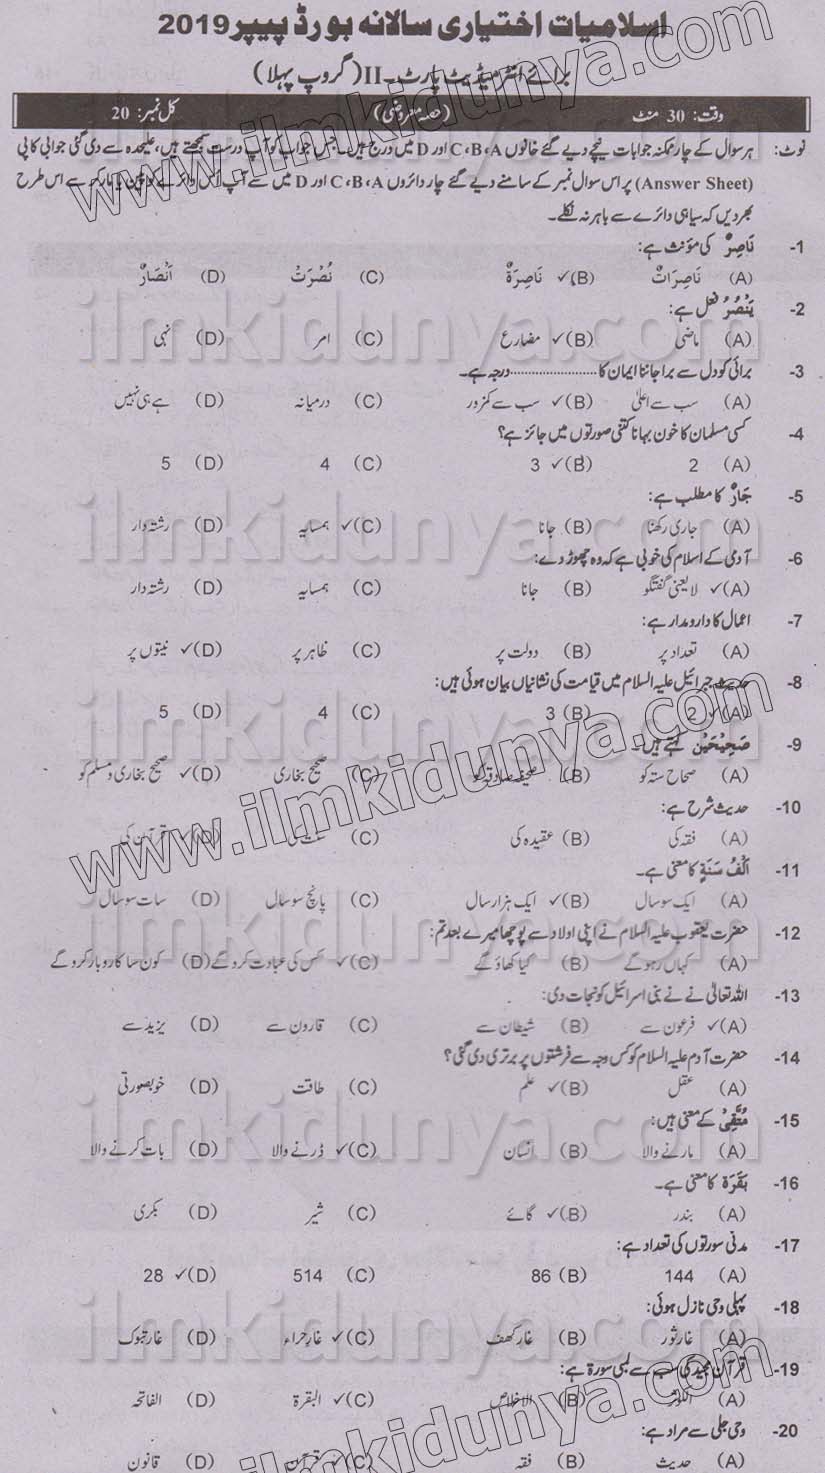 اسلامیات اختیاری سالانہ بورڈ پیپر 2019
برائے انٹرمیڈیٹ پارٹ۔ II (گروپ پہلا)
وقت: 30 منٹ (حصہ معروضی) کل نمبر: 20
نوٹ: ہر سوال کے چار ممکنہ جوابات نیچے دیے گئے خانوں C،B،A اور D میں درج ہیں۔ جس جواب کو آپ درست سمجھتے ہیں، علیحدہ سے دی گئی جوابی کاپی
(Answer Sheet) پر اس سوال نمبر کے سامنے دیے گئے چار دائروں C،B،A اور D میں سے آپ اُس دائرے کو پین یا مارکر سے اس طرح
بھر دیں کہ سیاہی دائرے سے باہر نہ نکلے۔
-1 نَاصِرٌ کی مؤنث ہے:
(A) نَاصِرَاتٌ (B)✓ نَاصِرَةٌ (C) نُصْرَتْ (D) اَنْصَارٌ
-2 يَنْصُرُ فعل ہے:
(A) ماضی (B)✓ مضارع (C) امر (D) نہی
-3 برائی کو دل سے برا جاننا ایمان کا ............ درجہ ہے۔
(A) سب سے اعلٰی (B)✓ سب سے کمزور (C) درمیانہ (D) ہے ہی نہیں
-4 کسی مسلمان کا خون بہانا کتنی صورتوں میں جائز ہے؟
(A) 2 (B)✓ 3 (C) 4 (D) 5
-5 جَارٌ کا مطلب ہے:
(A) جاری رکھنا (B) جانا (C)✓ ہمسایہ (D) رشتہ دار
-6 آدمی کے اسلام کی خوبی ہے کہ وہ چھوڑ دے:
(A)✓ لایعنی گفتگو (B) جانا (C) ہمسایہ (D) رشتہ دار
-7 اعمال کا دارومدار ہے:
(A) تعداد پر (B) دولت پر (C) ظاہر پر (D)✓ نیتوں پر
-8 حدیث جبرائیل علیہ السلام میں قیامت کی نشانیاں بیان ہوئی ہیں:
(A)✓ 2 (B) 3 (C) 4 (D) 5
-9 صَحِيْحَيْن کہتے ہیں۔
(A) صحاح ستہ کو (B) صحیفہ صادقہ کو (C) صحیح بخاری (D)✓ صحیح بخاری و مسلم کو
-10 حدیث شرح ہے:
(A) فقہ کی (B) عقیدہ کی (C) سنت کی (D)✓ قرآن کی
-11 اَلْفُ سَنَةٍ کا معنی ہے۔
(A) ایک سو سال (B)✓ ایک ہزار سال (C) پانچ سو سال (D) سات سو سال
-12 حضرت یعقوب علیہ السلام نے اپنی اولاد سے پوچھا میرے بعد تم:
(A) کہاں رہو گے (B) کیا کھاؤ گے (C)✓ کس کی عبادت کرو گے (D) کون سا کاروبار کرو گے
-13 اللہ تعالٰی نے نے بنی اسرائیل کو نجات دی:
(A)✓ فرعون سے (B) شیطان سے (C) قارون سے (D) یزید سے
-14 حضرت آدم علیہ السلام کو کس وجہ سے فرشتوں پر برتری دی گئی؟
(A) عقل (B)✓ علم (C) طاقت (D) خوبصورتی
-15 مُتَّقِیْ کے معنی ہیں:
(A) مارنے والا (B) انسان (C)✓ ڈرنے والا (D) بات کرنے والا
-16 بَقَرَة کا معنی ہے۔
(A) بندر (B)✓ گائے (C) شیر (D) بکری
-17 مدنی سورتوں کی تعداد ہے:
(A) 144 (B) 86 (C) 514 (D)✓ 28
-18 پہلی وحی نازل ہوئی:
(A) غارِ ثور (B) غارِ کھف (C)✓ غارِ حراء (D) غارِ تبوک
-19 قرآن مجید کی سب سے لمبی سورۃ ہے:
(A) الکوثر (B) الاخلاص (C)✓ البقرۃ (D) الفاتحہ
-20 وحی جلی سے مراد ہے:
(A) حدیث (B) فقہ (C)✓ قرآن (D) قانون
www.ilmkidunya.com
ilmkidunya.com
ilmkidunya.com
www.ilmkidunya.com
ilmkidunya.com
ilmkidunya.com
ilmkidunya.com
www.ilmkidunya.com